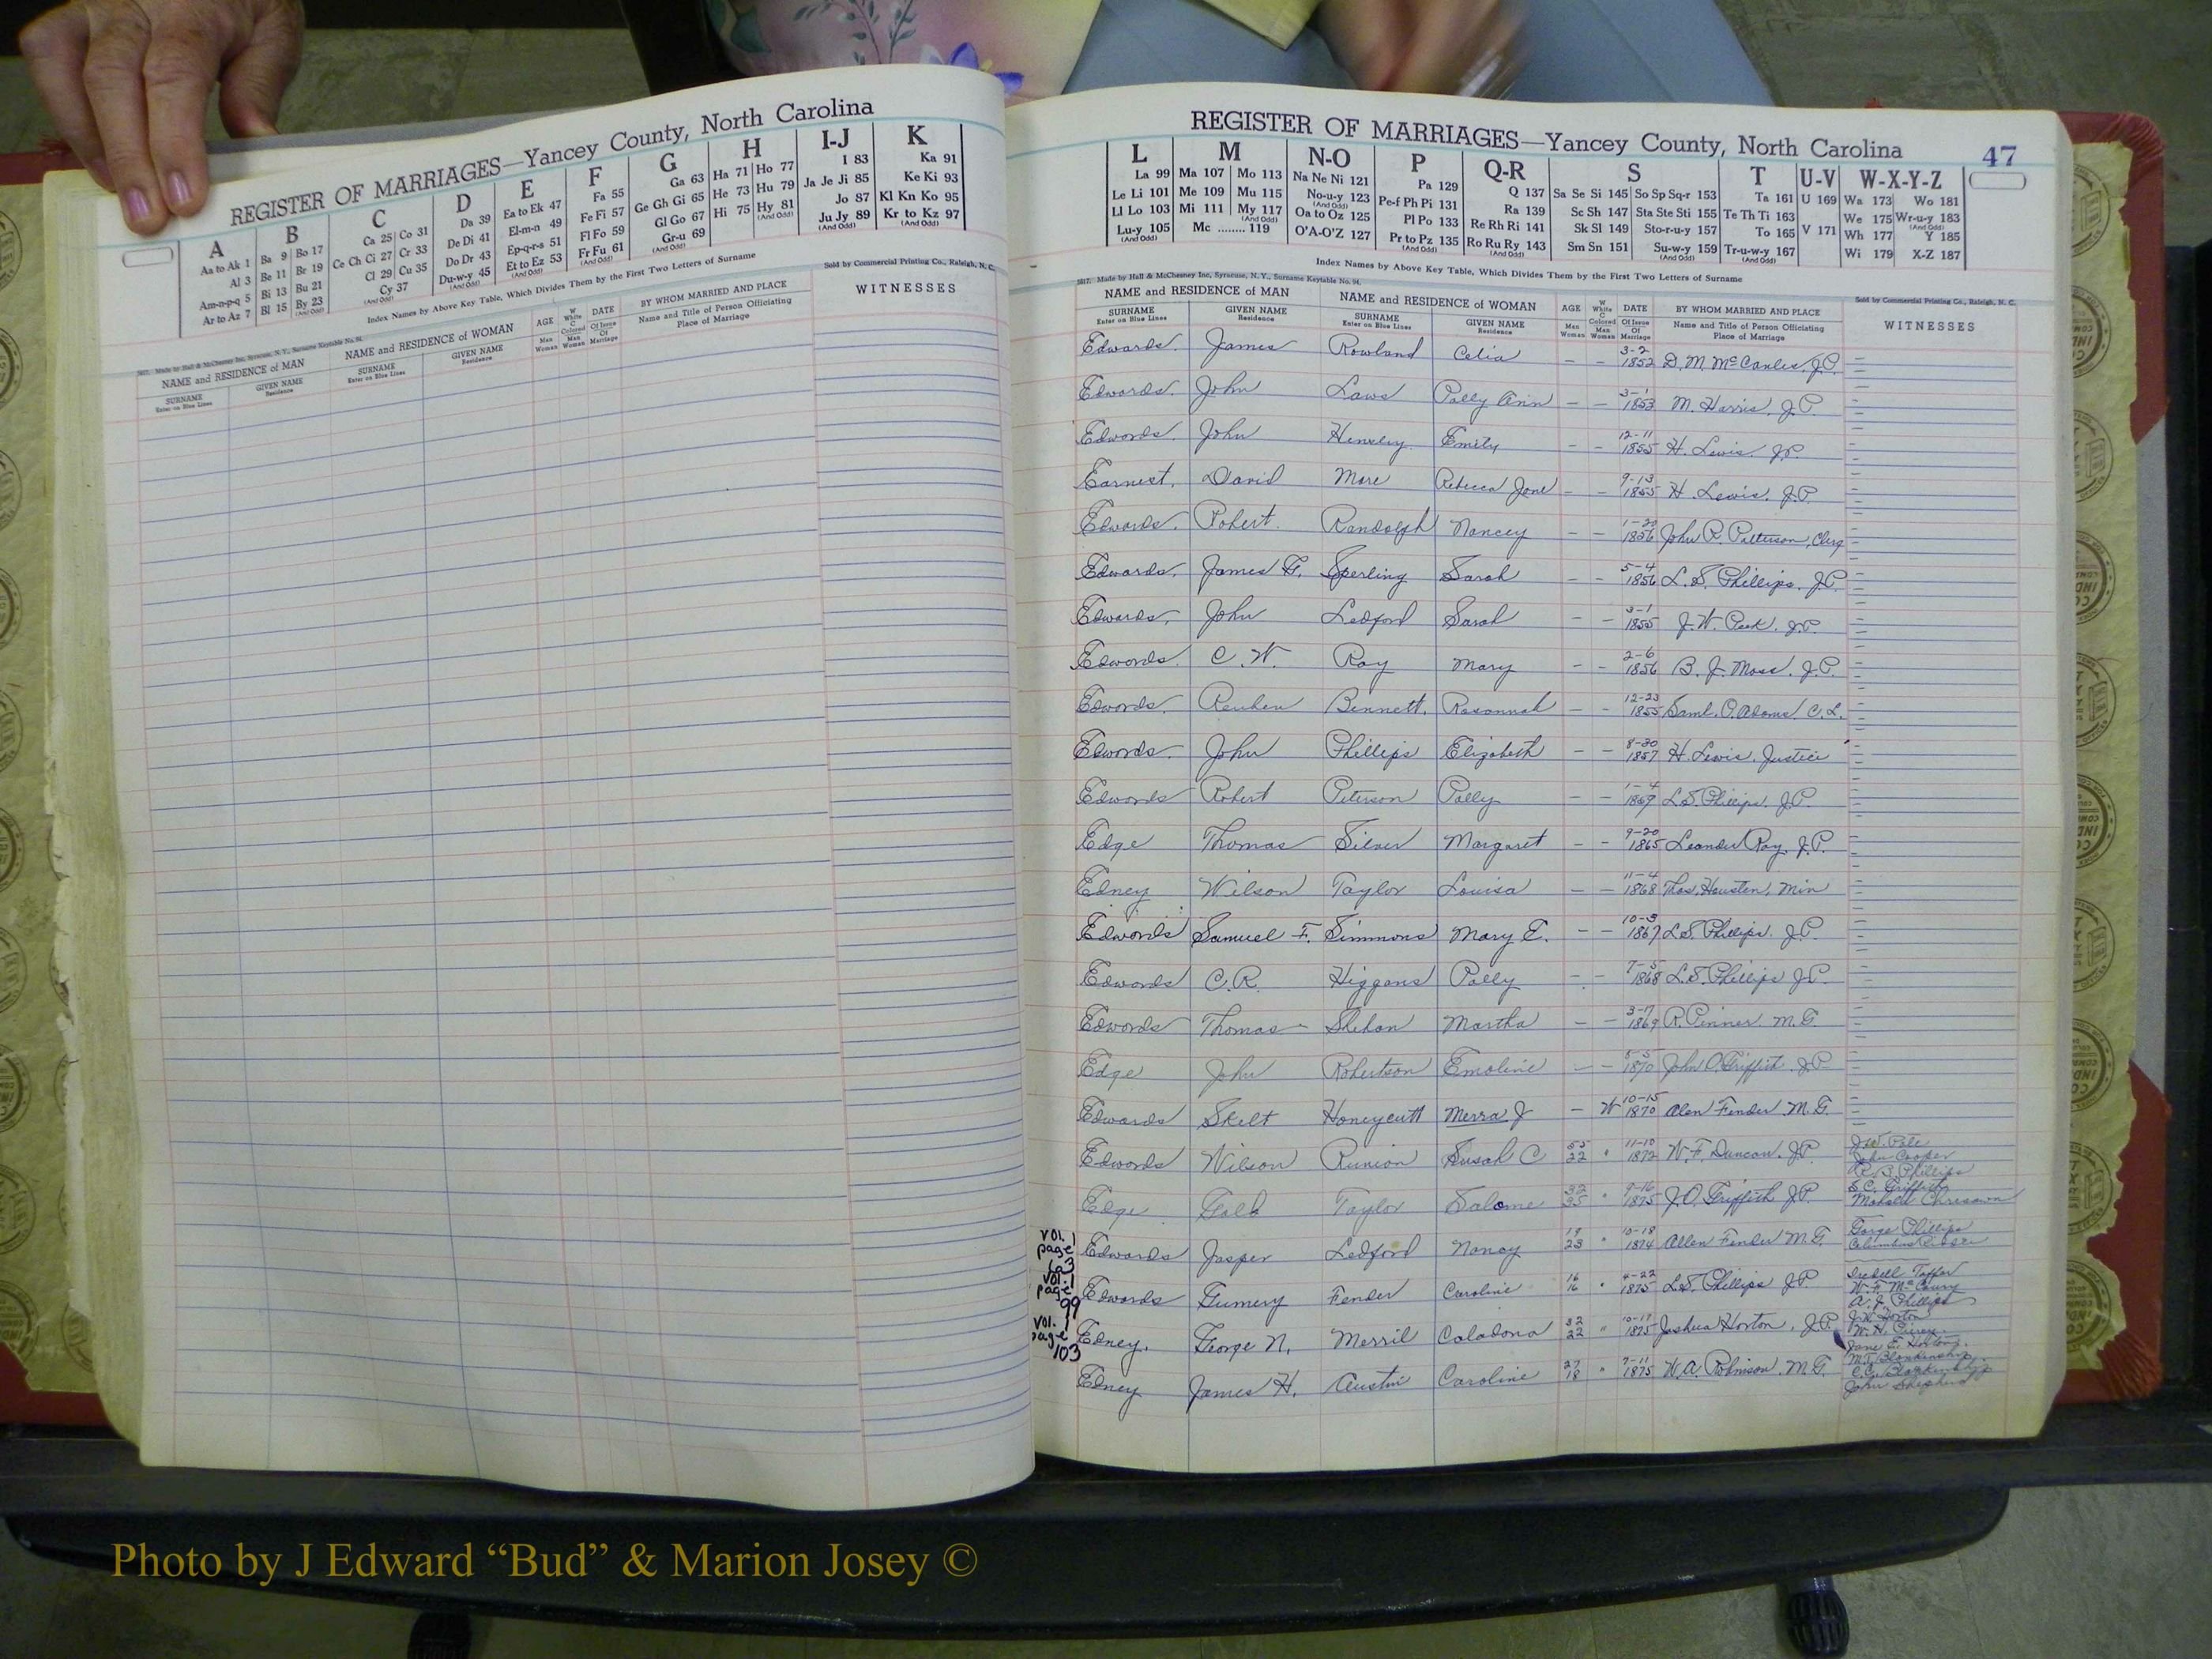 REGISTER OF MARRIAGES—Yancey County, North Carolina
A B C D E F G H I-J K
Aa to Ak 1 Ba 9 Bo 17 Ca 25 Co 31 Da 39 Ea to Ek 47 Fa 55 Ga 63 Ha 71 Ho 77 I 83 Ka 91
Al 3 Be 11 Br 19 Ce Ch Ci 27 Cr 33 De Di 41 El-m-n 49 Fe Fi 57 Ge Gh Gi 65 He 73 Hu 79 Ja Je Ji 85 Ke Ki 93
Am-n-p-q 5 Bi 13 Bu 21 Cl 29 Cu 35 Do Dr 43 Ep-q-r-s 51 Fl Fo 59 Gl Go 67 Hi 75 Hy 81 Jo 87 Kl Kn Ko 95
Ar to Az 7 Bl 15 By 23 Cy 37 Du-w-y 45 Et to Ez 53 Fr Fu 61 Gr-u 69 Ju Jy 89 Kr to Kz 97
(And Odd) (And Odd) (And Odd) (And Odd) (And Odd) (And Odd) (And Odd) (And Odd)
Index Names by Above Key Table, Which Divides Them by the First Two Letters of Surname
Sold by Commercial Printing Co., Raleigh, N. C.
Made by Hall & McChesney Inc, Syracuse, N. Y., Surname Keytable No. 94.
NAME and RESIDENCE of MAN NAME and RESIDENCE of WOMAN AGE W White C Colored DATE BY WHOM MARRIED AND PLACE WITNESSES
SURNAME GIVEN NAME SURNAME GIVEN NAME Man Man Of Issue Name and Title of Person Officiating
Enter on Blue Lines Residence Enter on Blue Lines Residence Woman Woman Of Marriage Place of Marriage
REGISTER OF MARRIAGES—Yancey County, North Carolina 47
L M N-O P Q-R S T U-V W-X-Y-Z
La 99 Ma 107 Mo 113 Na Ne Ni 121 Pa 129 Q 137 Sa Se Si 145 So Sp Sq-r 153 Ta 161 U 169 Wa 173 Wo 181
Le Li 101 Me 109 Mu 115 No-u-y 123 Pe-f Ph Pi 131 Ra 139 Sc Sh 147 Sta Ste Sti 155 Te Th Ti 163 We 175 Wr-u-y 183
Ll Lo 103 Mi 111 My 117 Oa to Oz 125 Pl Po 133 Re Rh Ri 141 Sk Sl 149 Sto-r-u-y 157 To 165 V 171 Wh 177 Y 185
Lu-y 105 Mc ........ 119 O'A-O'Z 127 Pr to Pz 135 Ro Ru Ry 143 Sm Sn 151 Su-w-y 159 Tr-u-w-y 167 Wi 179 X-Z 187
(And Odd) (And Odd) (And Odd) (And Odd) (And Odd) (And Odd) (And Odd)
Index Names by Above Key Table, Which Divides Them by the First Two Letters of Surname
Made by Hall & McChesney Inc, Syracuse, N. Y., Surname Keytable No. 94.
Sold by Commercial Printing Co., Raleigh, N. C.
NAME and RESIDENCE of MAN NAME and RESIDENCE of WOMAN AGE W White C Colored DATE BY WHOM MARRIED AND PLACE WITNESSES
SURNAME GIVEN NAME SURNAME GIVEN NAME Man Man Of Issue Name and Title of Person Officiating
Enter on Blue Lines Residence Enter on Blue Lines Residence Woman Woman Of Marriage Place of Marriage
Edwards James Rowland Celia – – 3-2 1852 D. M. McCanles, J.P.
Edwards. John Laws Polly Ann – – 3-1 1853 M. Harris, J.P.
Edwards. John Hensley Emily – – 12-11 1855 H. Lewis. J.P.
Earnest. David More Rebecca Jane – – 9-13 1855 H. Lewis, J.P.
Edwards. Robert. Randolph Nancey – – 1-20 1856 John R. Patterson, Clerg
Edwards. James G. Sperling Sarah – – 5-4 1856 L. S. Phillips, J.P.
Edwards. John Ledford Sarah – – 3-1 1855 J. W. Peek. J.P.
Edwards. C. W. Ray Mary – – 2-6 1856 B. J. Moss. J.P.
Edwards. Reuben Bennett. Rosannah – – 12-23 1855 Saml. O. Adams
Edwards. John Phillips Elizabeth – – 8-30 1857 H. Lewis. Justice
Edwards Robert Peterson Polly – – 1-4 L.S. Phillips, J.P.
Edge Thomas Silver Margaret – – 9-20 1865 Leander Ray, J.P.
Edney Wilson Taylor Louisa – – 11-4 1868 Thos. Housten, Min
Edwards Samuel F. Simmons Mary E. – – 10-3 1867 L.S. Phillips. J.P.
Edwards C.R. Higgans Polly – – 7-5 1868 L.S. Phillips J.P.
Edwards Thomas Shehan Martha – – 3-7 1869 R. Penner. M.G.
Edge John Robertson Emoline – – 5-5 1870 John O. Griffith J.P.
Edwards Skelt Honeycutt Merra J – W 10-15 1870 Alen Fender M.G.
Edwards Wilson Runion Susah C 22 " 11-10 1872 W. F. Duncan, J.P. John Cooper R. B. Phillips
Edge Taylor Salome " 9-16 1875 J. O. Griffith J.P. S.C. Griffith
vol. 1 page 63 Edwards Jasper Ledford Nancy 19 23 " 10-18 1874 Allen Fender M.G. George Phillips
vol. 1 page 99 Edwards Gumery Fender Caroline 16 16 " 4-22 1875 L.S. Phillips J.P. W. F. McCoury A. J. Phillips
vol. 1 page 103 Edney. George N. Merril Caladona 32 22 " 10-17 1875 Joshua Horton, J.P. J.W. Horton Jane E. Horton
Edney James H. Austin Caroline 27 18 " 7-11 1875 W. A. Robinson. M.G. M.T. Blankenship John Shepherd
Photo by J Edward “Bud” & Marion Josey ©